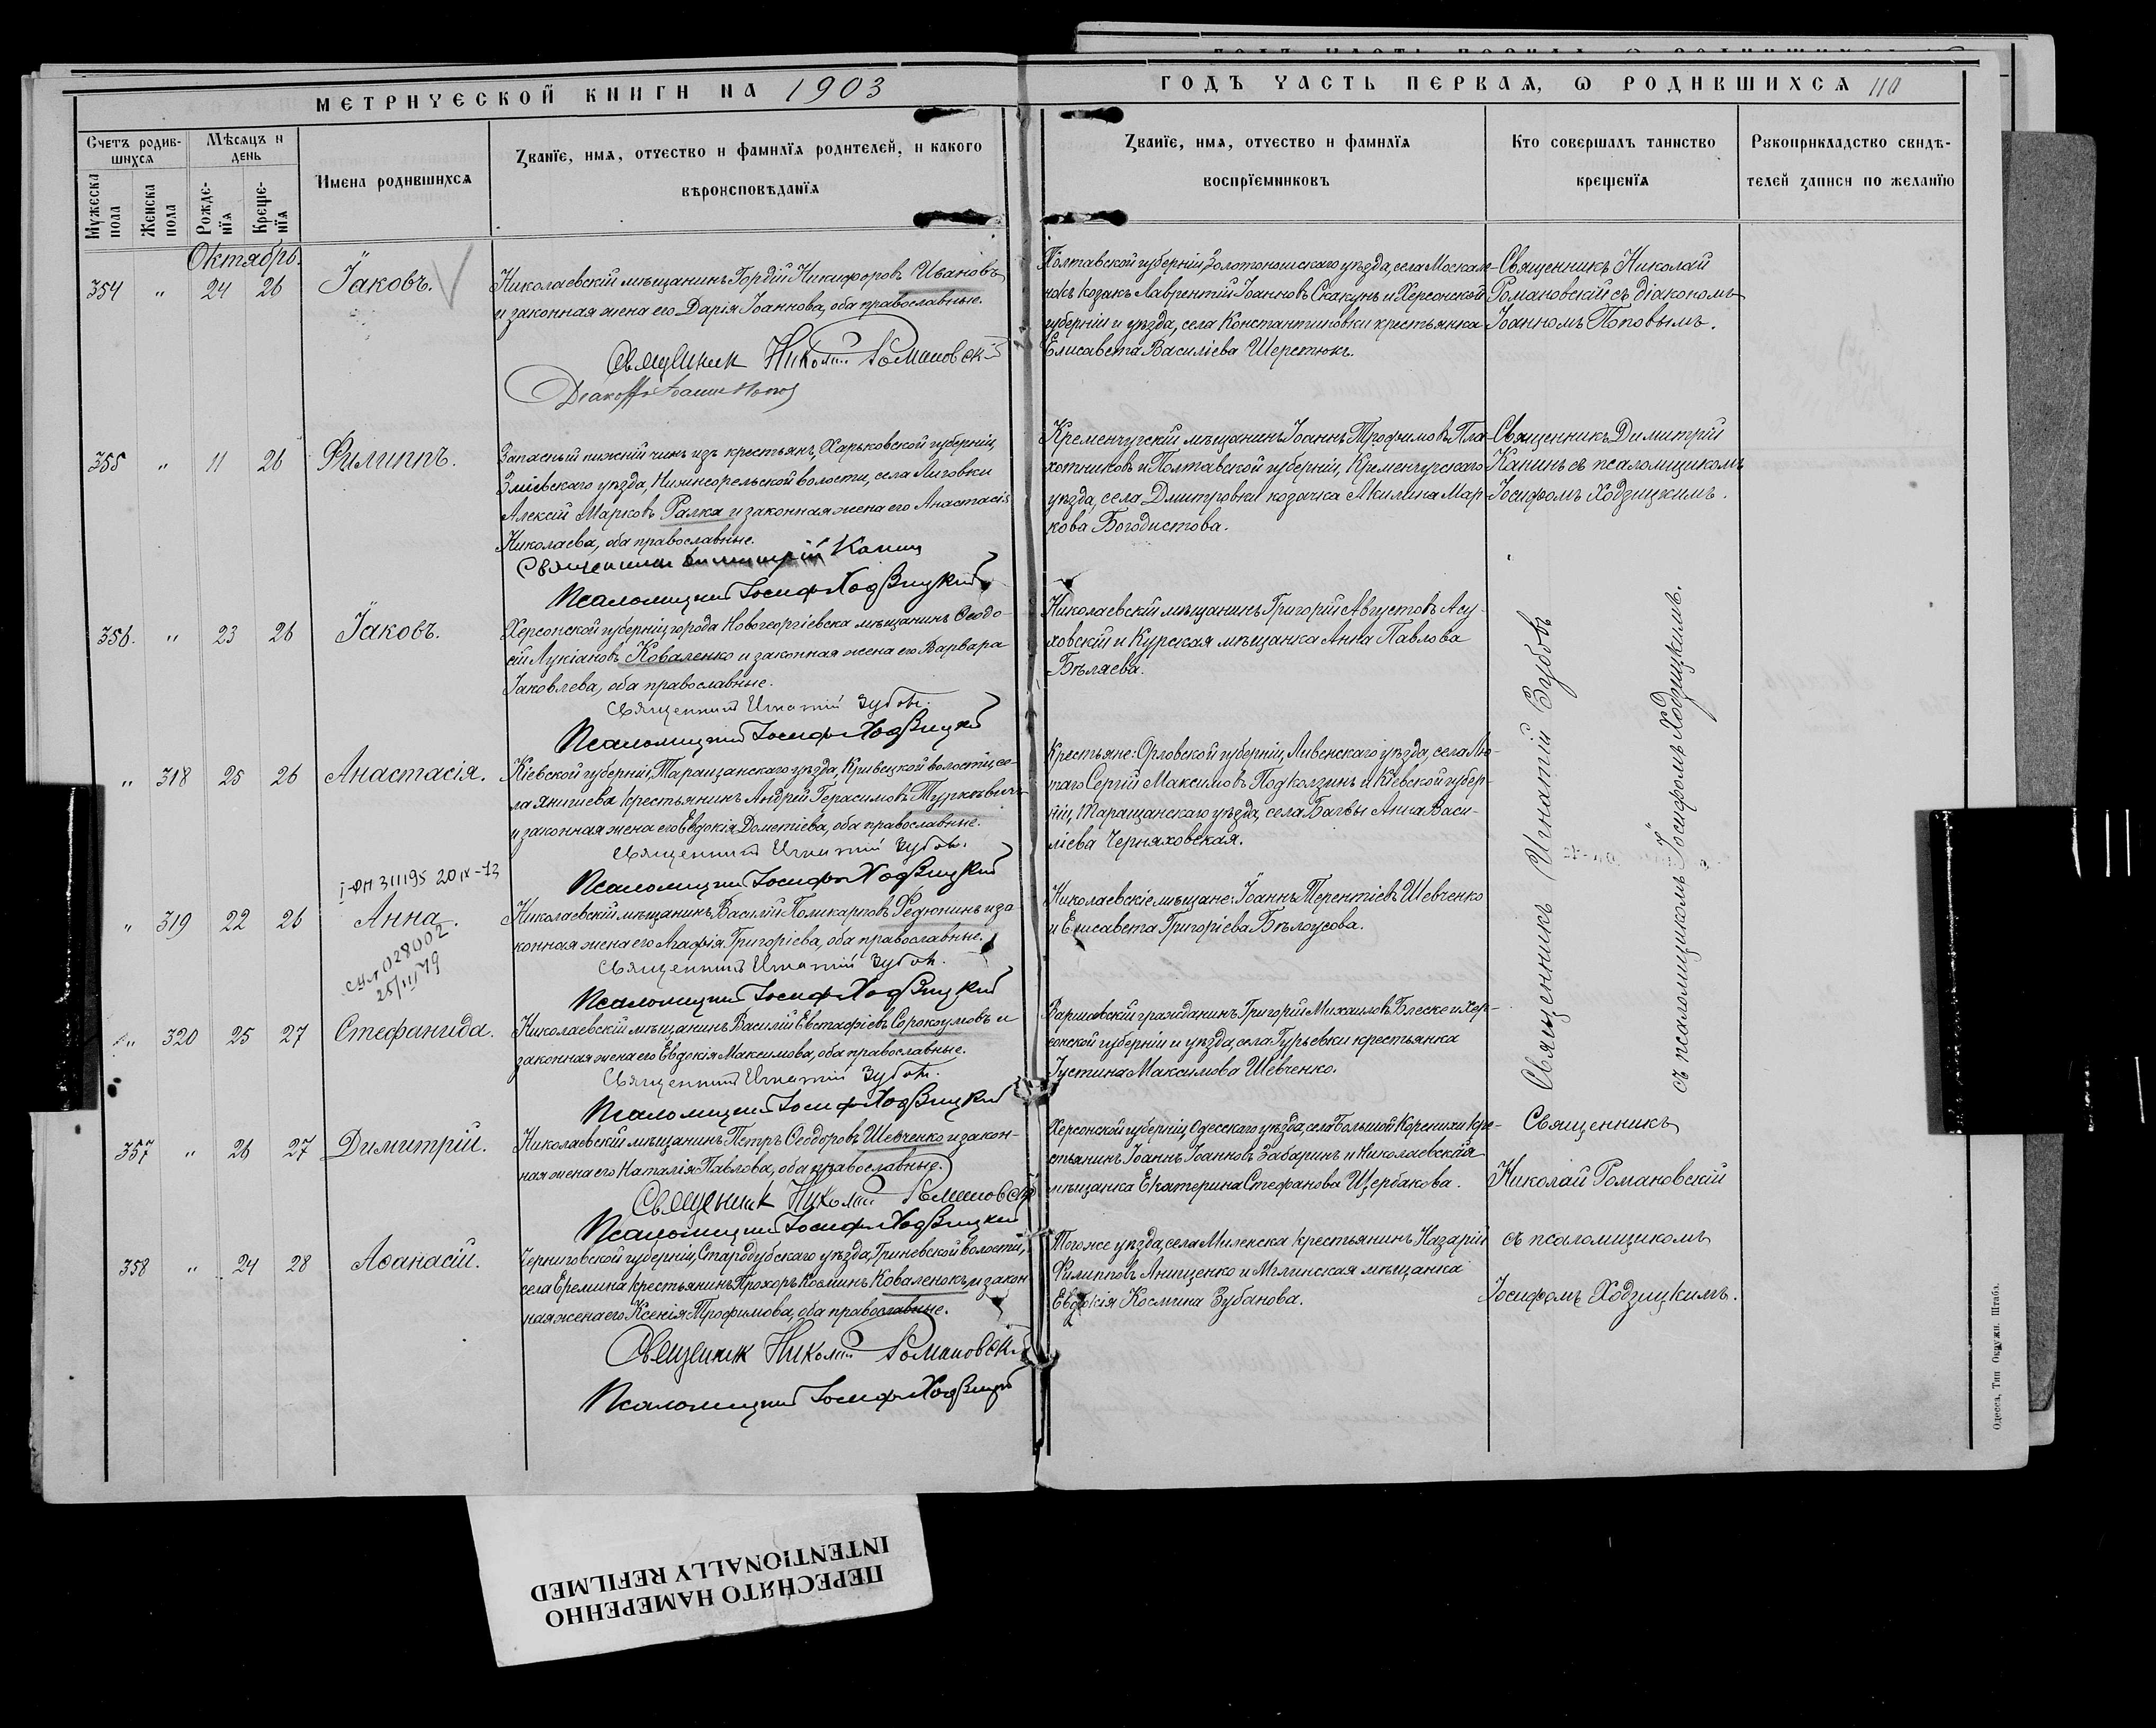 МЕТРИЧЕСКОЙ КНИГИ НА 1903
ГОДЪ ЧАСТЬ ПЕРВАЯ, Ѡ РОДИВШИХСЯ 110
Счетъ родив-
шихся
Мѣсяцъ и
день
Мужеска
пола
Женска
пола
Рожде-
нїя
Креще-
нїя
Имена родившихся
Званїе, имя, отчество и фамилїя родителей, и какого
вѣроисповѣданїя
Званїе, имя, отчество и фамилїя
воспрїемниковъ
Кто совершалъ таинство
крещенїя
Рукоприкладство свидѣ-
телей записи по желанїю
Октябрь.
354 " 24 26 Іаковъ.
Николаевскій мѣщанинъ Гордій Никифоровъ Ивановъ
и законная жена его Дарія Іоаннова, оба православные.
Священник Николай Романовский
Полтавской губерніи, Золотоношскаго уѣзда, села Москале-
нокъ козакъ Лаврентій Іоанновъ Скакунъ и Херсонской
губерніи и уѣзда, села Константиновки крестьянка
Елисавета Василіева Шерстюкъ.
Священникъ Николай
Романовскій съ діакономъ
Іоанномъ Поповымъ.
355 " 11 26 Филиппъ.
Запасный нижній чинъ изъ крестьянъ, Харьковской губерніи,
Зміевскаго уѣзда, Нижнеорельской волости, села Лиговки
Алексій Марковъ Ралка и законная жена его Анастасія
Николаева, оба православные.
Священник Димитрій Канин
Псаломщикъ Іосифъ Ходзицкій
Кременчугскій мѣщанинъ Іоаннъ Трофимовъ Пла-
хотниковъ и Полтавской губерніи, Кременчугскаго
уѣзда, села Дмитровки козачка Акилина Мар-
кова Богодистова.
Священникъ Димитрій
Канинъ съ псаломщикомъ
Іосифомъ Ходзицкимъ.
356. " 23 26 Іаковъ.
Херсонской губерніи, города Новогеоргіевска мѣщанинъ Ѳеодо-
сій Лукіановъ Коваленко и законная жена его Варвара
Іаковлева, оба православные.
Священникъ Игнатій Зубовъ.
Псаломщикъ Іосифъ Ходзицкій
Николаевскій мѣщанинъ Григорій Августовъ Асу-
ховскій и Курская мѣщанка Анна Павлова
Бѣляева.
Священникъ Игнатій Зубовъ
съ псаломщикомъ Іосифомъ Ходзицкимъ.
" 318 25 26 Анастасія.
Кіевской губерніи, Таращанскаго уѣзда, Кривецкой волости, се-
ла Янишева крестьянинъ Андрей Герасимовъ Туркевичъ
и законная жена его Евдокія Дометіева, оба православные.
Священникъ Игнатій Зубовъ.
Псаломщикъ Іосифъ Ходзицкій
Крестьяне: Орловской губерніи, Ливенскаго уѣзда, села Лю-
таго Сергій Максимовъ Подколзинъ и Кіевской губер-
ніи, Таращанскаго уѣзда, села Багвы Анна Васи-
ліева Черняховская.
I-ФН 311195 20 IX-73
" 319 22 26 Анна.
028002
25/III 79
Николаевскій мѣщанинъ Василій Поликарповъ Федюнинъ и за-
конная жена его Агафія Григоріева, оба православные.
Священникъ Игнатій Зубовъ.
Псаломщикъ Іосифъ Ходзицкій
Николаевскіе мѣщане: Іоаннъ Терентіевъ Шевченко
и Елисавета Григоріева Бѣлоусова.
" 320 25 27 Стефанида.
Николаевскій мѣщанинъ Василій Евстафіевъ Сорокоумовъ и
законная жена его Евдокія Максимова, оба православные.
Священникъ Игнатій Зубовъ.
Псаломщикъ Іосифъ Ходзицкій
Варшавскій гражданинъ Григорій Михаиловъ Блеске и Хер-
сонской губерніи и уѣзда, села Гурьевки крестьянка
Іустина Максимова Шевченко.
357 " 26 27 Димитрій.
Николаевскій мѣщанинъ Петръ Ѳеодоровъ Шевченко и закон-
ная жена его Наталія Павлова, оба православные.
Священник Николай Романовский
Псаломщикъ Іосифъ Ходзицкій
Херсонской губерніи, Одесского уѣзда, села Большой Коренихи кре-
стьянинъ Іоаннъ Іоанновъ Забаринъ и Николаевская
мѣщанка Екатерина Стефанова Щербакова.
Священникъ
Николай Романовскій
съ псаломщикомъ
Іосифомъ Ходзицкимъ.
358 " 24 28 Аѳанасій.
Черниговской губерніи, Стародубскаго уѣзда, Гриневской волости,
села Еремина крестьянинъ Прохоръ Косминъ Коваленокъ и закон-
ная жена его Ксенія Трофимова, оба православные.
Священник Николай Романовский
Псаломщикъ Іосифъ Ходзицкій
Того же уѣзда, села Миленска крестьянинъ Назарій
Филипповъ Анищенко и Мглинская мѣщанка
Евдокія Космина Зубанова.
Одесса, Тип. Окружн. Штаба.
ПЕРЕСНЯТО НАМЕРЕННО
INTENTIONALLY REFILMED